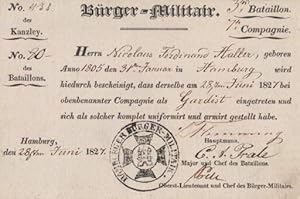 No. 438
des
Kanzley.
Bürger-Militair.
5tes Bataillon.
7te Compagnie.
No. 80
des
Bataillons.
Herrn Nicolaus Ferdinand Haller, geboren
Anno 1805 den 31sten Januar in Hamburg wird
hiedurch bescheinigt, dass derselbe am 28sten Juni 1827 bei
obenbenannter Compagnie als Gardist eingetreten und
sich als solcher komplet uniformirt und armirt gestellt habe.
Hamburg,
den 28sten Juni 1827.
Hauptmann.
Major und Chef des Bataillons.
Oberst-Lieutenant und Chef des Bürger-Militairs.
HAMBURGER BÜRGER-MILITAIR.